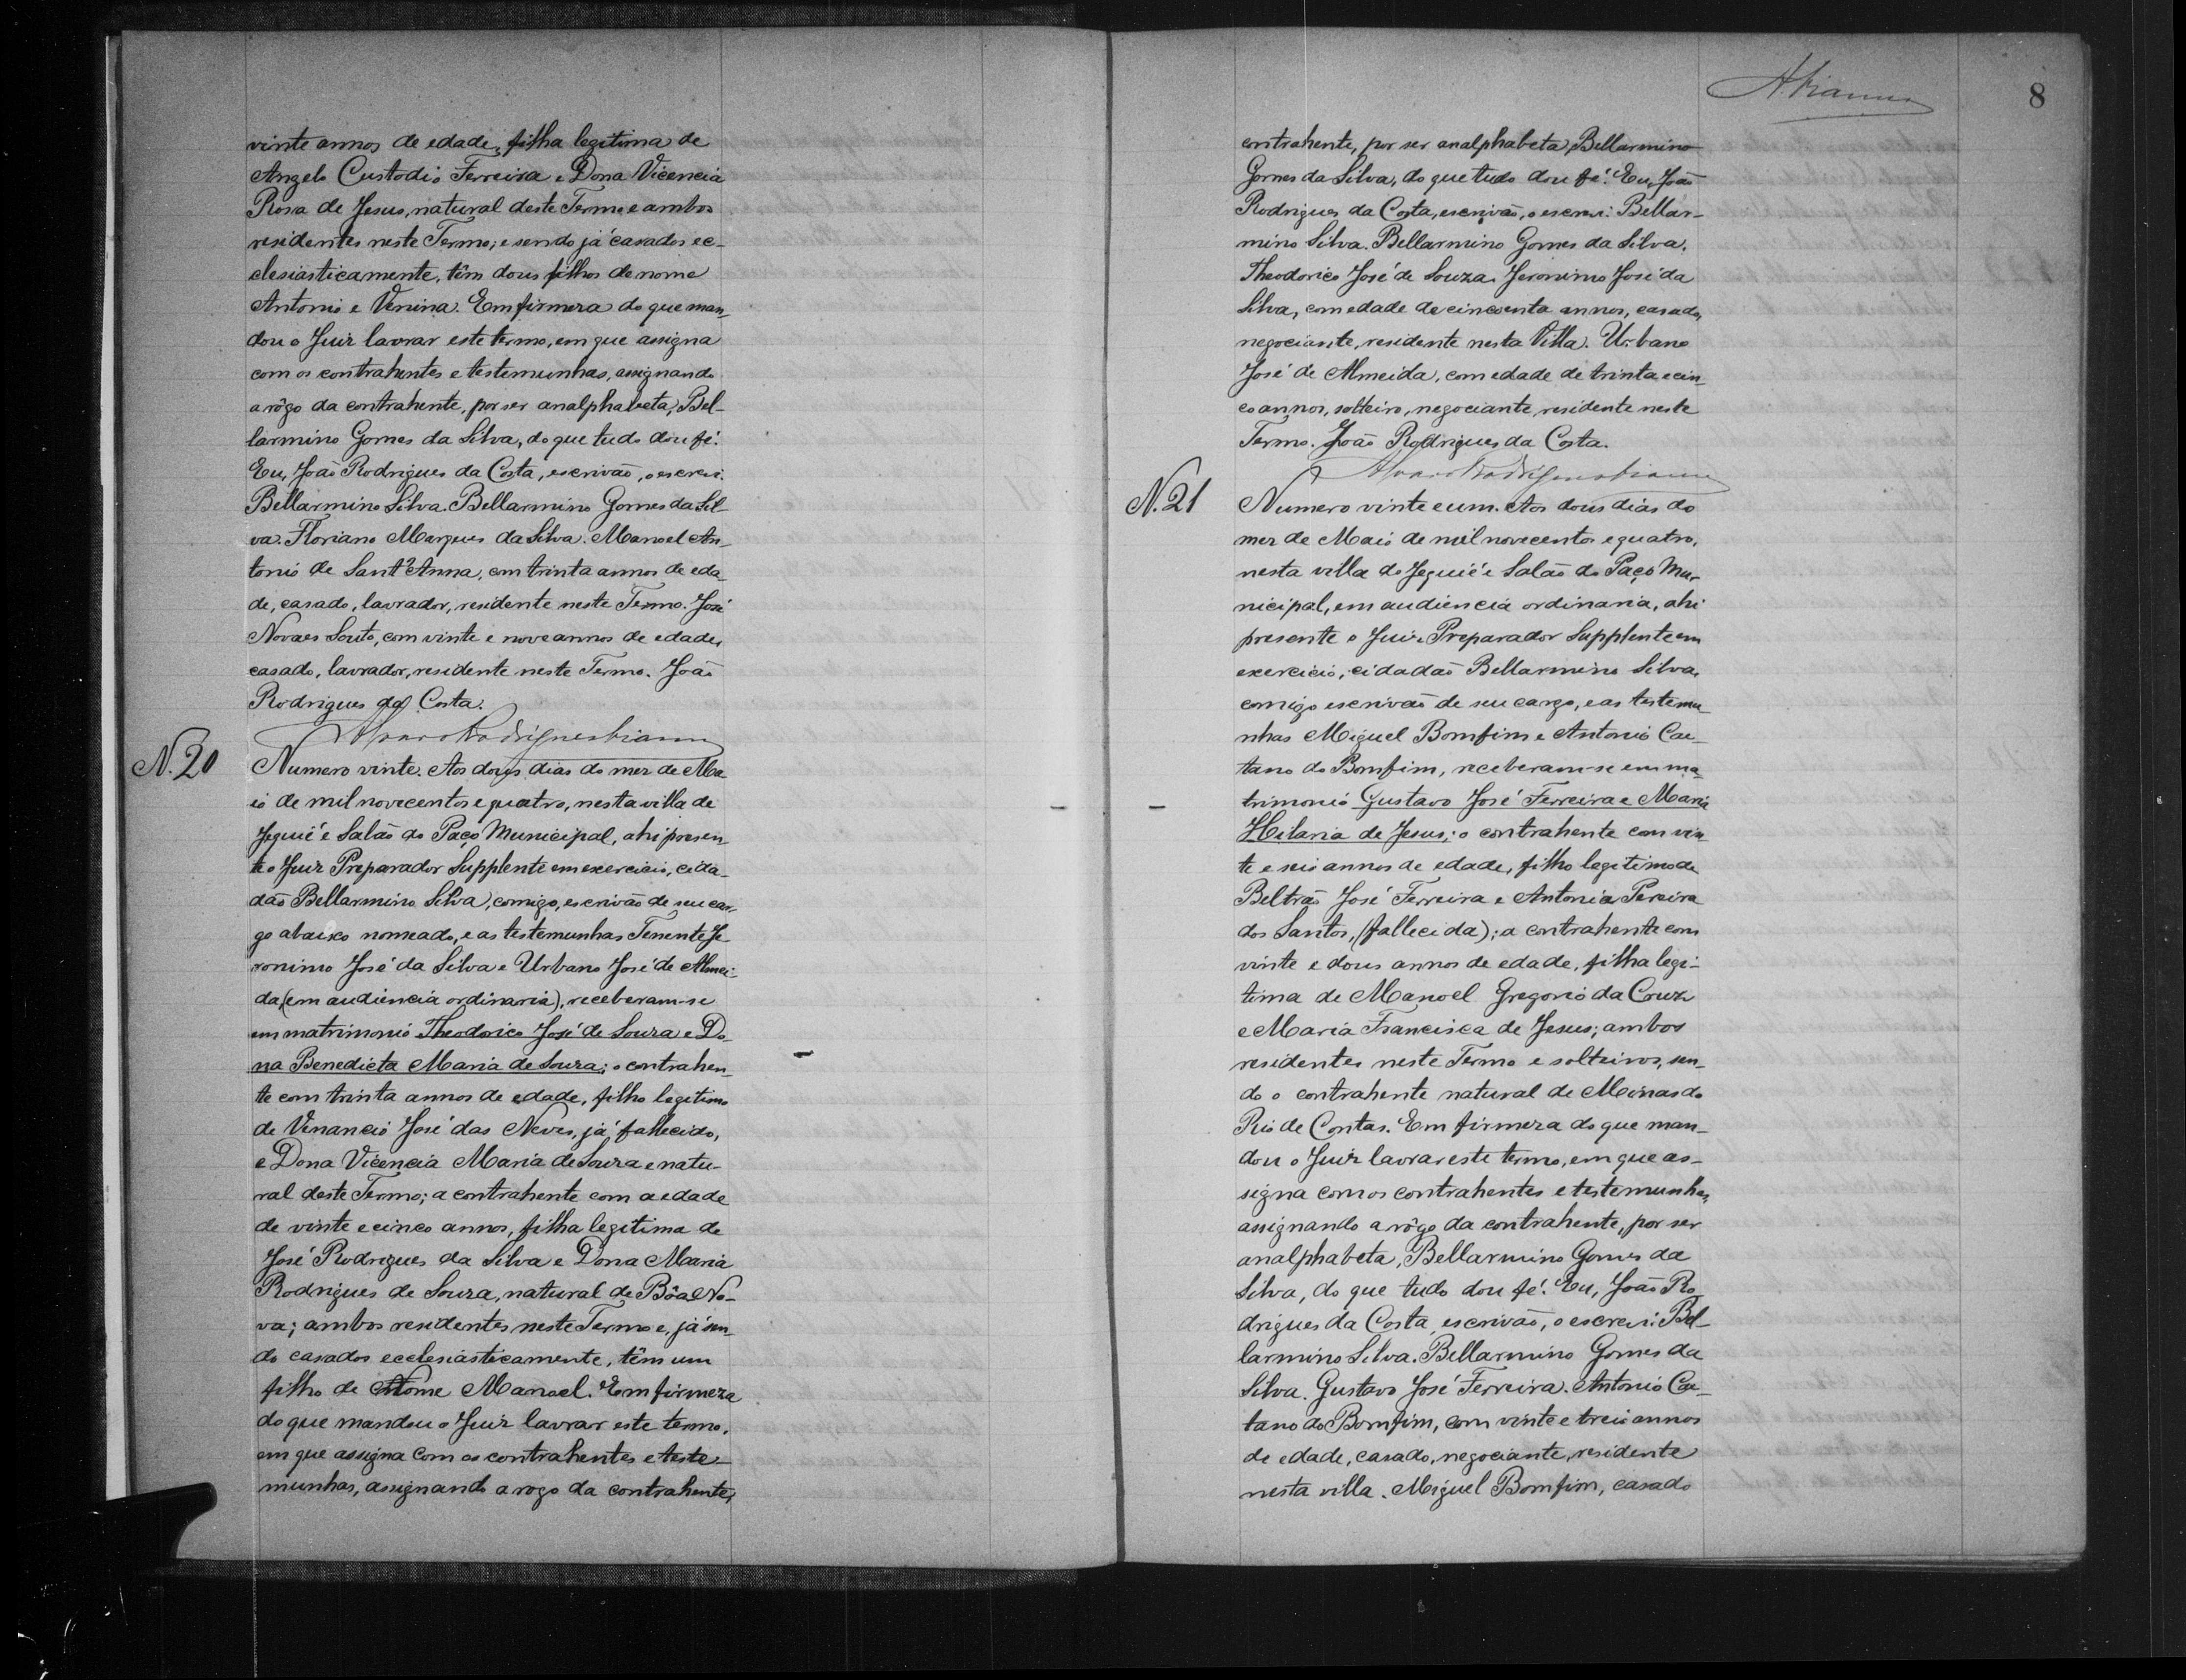 vinte annos de edade, filha legitima de
Angelo Custodio Ferreira e Dona Vicencia
Rosa de Jesus, natural deste Termo e ambos
residentes neste Termo; e sendo já casados ec-
clesiasticamente, têm dous filhos de nome
Antonio e Venina. Em firmeza do que man-
dou o Juiz lavrar este termo, em que assigna
com os contrahentes e testemunhas, assignando
a rôgo da contrahente, por ser analphabeta, Bel-
larmino Gomes da Silva, do que tudo dou fé.
Eu, João Rodrigues da Costa, escrivão, o escrevi.
Bellarmino Silva. Bellarmino Gomes da Sil-
va. Floriano Marques da Silva. Manoel An-
tonio de Sant'Anna, com trinta annos de eda-
de, casado, lavrador, residente neste Termo. José
Novaes Souto, com vinte e nove annos de edade,
casado, lavrador, residente neste Termo. João
Rodrigues da Costa.
N. 20
Numero vinte. Aos dous dias do mez de Ma-
io de mil novecentos e quatro, nesta villa de
Jequié e Salão do Paço Municipal, ahi presen-
te o Juiz Preparador Supplente em exercicio, cida-
dão Bellarmino Silva, comigo, escrivão de seu car-
go abaixo nomeado, e as testemunhas Tenente Je-
ronimo José da Silva e Urbano José de Almei-
da, (em audiencia ordinaria), receberam-se
em matrimonio Theodorico José de Souza e Do-
na Benedicta Maria de Souza; o contrahen-
te com trinta annos de edade, filho legitimo
de Venancio José das Neves, já fallecido,
e Dona Vicencia Maria de Souza e natu-
ral deste Termo; a contrahente com a edade
de vinte e cinco annos, filha legitima de
José Rodrigues da Silva e Dona Maria
Rodrigues de Souza, natural de Bôa No-
va; ambos residentes neste Termo e, já sen-
do casados ecclesiasticamente, têm um
filho de Nome Manoel. Em firmeza
do que mandou o Juiz lavrar este termo,
em que assigna com os contrahentes e teste-
munhas, assignando a rogo da contrahente,
8
contrahente, por ser analphabeta, Bellarmino
Gomes da Silva, do que tudo dou fé. Eu, João
Rodrigues da Costa, escrivão, o escrevi. Bellar-
mino Silva. Bellarmino Gomes da Silva.
Theodorico José de Souza. Jeronimo José da
Silva, com edade de cincoenta annos, casado,
negociante, residente nesta Villa. Urbano
José de Almeida, com edade de trinta e cin-
co annos, solteiro, negociante, residente neste
Termo. João Rodrigues da Costa.
N. 21
Numero vinte e um. Aos dous dias do
mez de Maio de mil novecentos e quatro,
nesta villa de Jequié e Salão do Paço Mu-
nicipal, em audiencia ordinaria, ahi
presente o Juiz Preparador Supplente em
exercicio, cidadão Bellarmino Silva,
comigo escrivão de seu cargo, e as testemu-
nhas Miguel Bomfim e Antonio Cae-
tano do Bomfim, receberam-se em ma-
trimonio Gustavo José Ferreira e Maria
Hilaria de Jesus; o contrahente com vin-
te e seis annos de edade, filho legitimo de
Beltrão José Ferreira e Antonia Pereira
dos Santos, (fallecida); a contrahente com
vinte e dous annos de edade, filha legi-
tima de Manoel Gregorio da Cruz
e Maria Francisca de Jesus; ambos
residentes neste Termo e solteiros, sen-
do o contrahente natural de Minas do
Rio de Contas. Em firmeza do que man-
dou o Juiz lavrar este termo, em que as-
signa com os contrahentes e testemunhas,
assignando a rôgo da contrahente, por ser
analphabeta, Bellarmino Gomes da
Silva, do que tudo dou fé. Eu, João Ro-
drigues da Costa, escrivão, o escrevi. Bel-
larmino Silva. Bellarmino Gomes da
Silva. Gustavo José Ferreira. Antonio Cae-
tano do Bomfim, com vinte e treis annos
de edade, casado, negociante, residente
nesta villa. Miguel Bomfim, casado